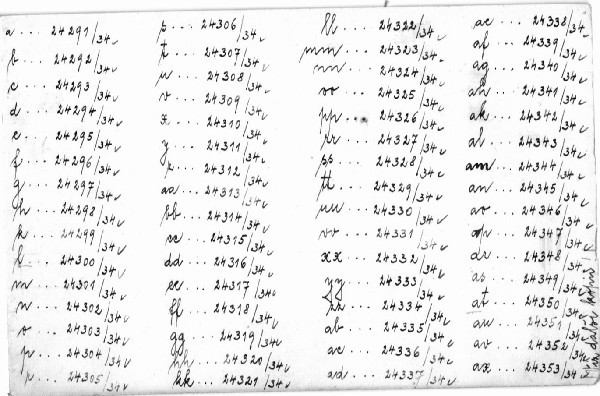 a ... 24291/34 v
b ... 24292/34 v
c ... 24293/34 v
d ... 24294/34 v
e ... 24295/34 v
f ... 24296/34 v
g ... 24297/34 v
h ... 24298/34 v
k ... 24299/34 v
l ... 24300/34 v
m ... 24301/34 v
n ... 24302/34 v
o ... 24303/34 v
p ... 24304/34 v
r ... 24305/34 v
s ... 24306/34 v
t ... 24307/34 v
u ... 24308/34 v
v ... 24309/34 v
x ... 24310/34 v
y ... 24311/34 v
z ... 24312/34 v
aa ... 24313/34 v
bb ... 24314/34 v
cc ... 24315/34 v
dd ... 24316/34 v
ee ... 24317/34 v
ff ... 24318/34 v
gg ... 24319/34 v
hh ... 24320/34 v
kk ... 24321/34 v
ll ... 24322/34 v
mm ... 24323/34 v
nn ... 24324/34 v
oo ... 24325/34 v
pp ... 24326/34 v
rr ... 24327/34 v
ss ... 24328/34 v
tt ... 24329/34 v
uu ... 24330/34 v
vv ... 24331/34 v
xx ... 24332/34 v
yy ... 24333/34 v
zz ... 24334/34 v
ab ... 24335/34 v
ac ... 24336/34 v
ad ... 24337/34 v
ae ... 24338/34 v
af ... 24339/34 v
ag ... 24340/34 v
ah ... 24341/34 v
ak ... 24342/34 v
al ... 24343/34 v
am ... 24344/34 v
an ... 24345/34 v
ao ... 24346/34 v
ap ... 24347/34 v
ar ... 24348/34 v
as ... 24349/34 v
at ... 24350/34 v
au ... 24351/34 v
av ... 24352/34 v
ax ... 24353/34 v